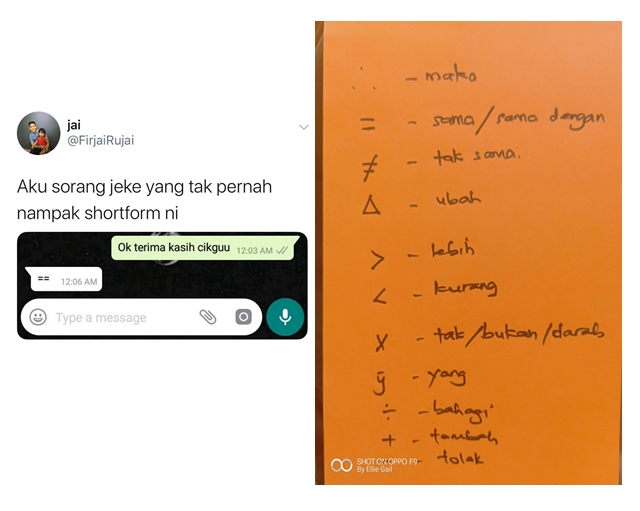 jai
@FirjaiRujai
Aku sorang jeke yang tak pernah
nampak shortform ni
Ok terima kasih cikguu 12:03 AM
== 12:06 AM
Type a message
∴ - maka
= - sama/sama dengan
≠ - tak sama.
Δ - ubah
> - lebih
< - kurang
x - tak/bukan/darab
ȳ - yang
÷ - bahagi
+ - tambah
- - tolak
SHOT ON OPPO F9
By Ellie Gail